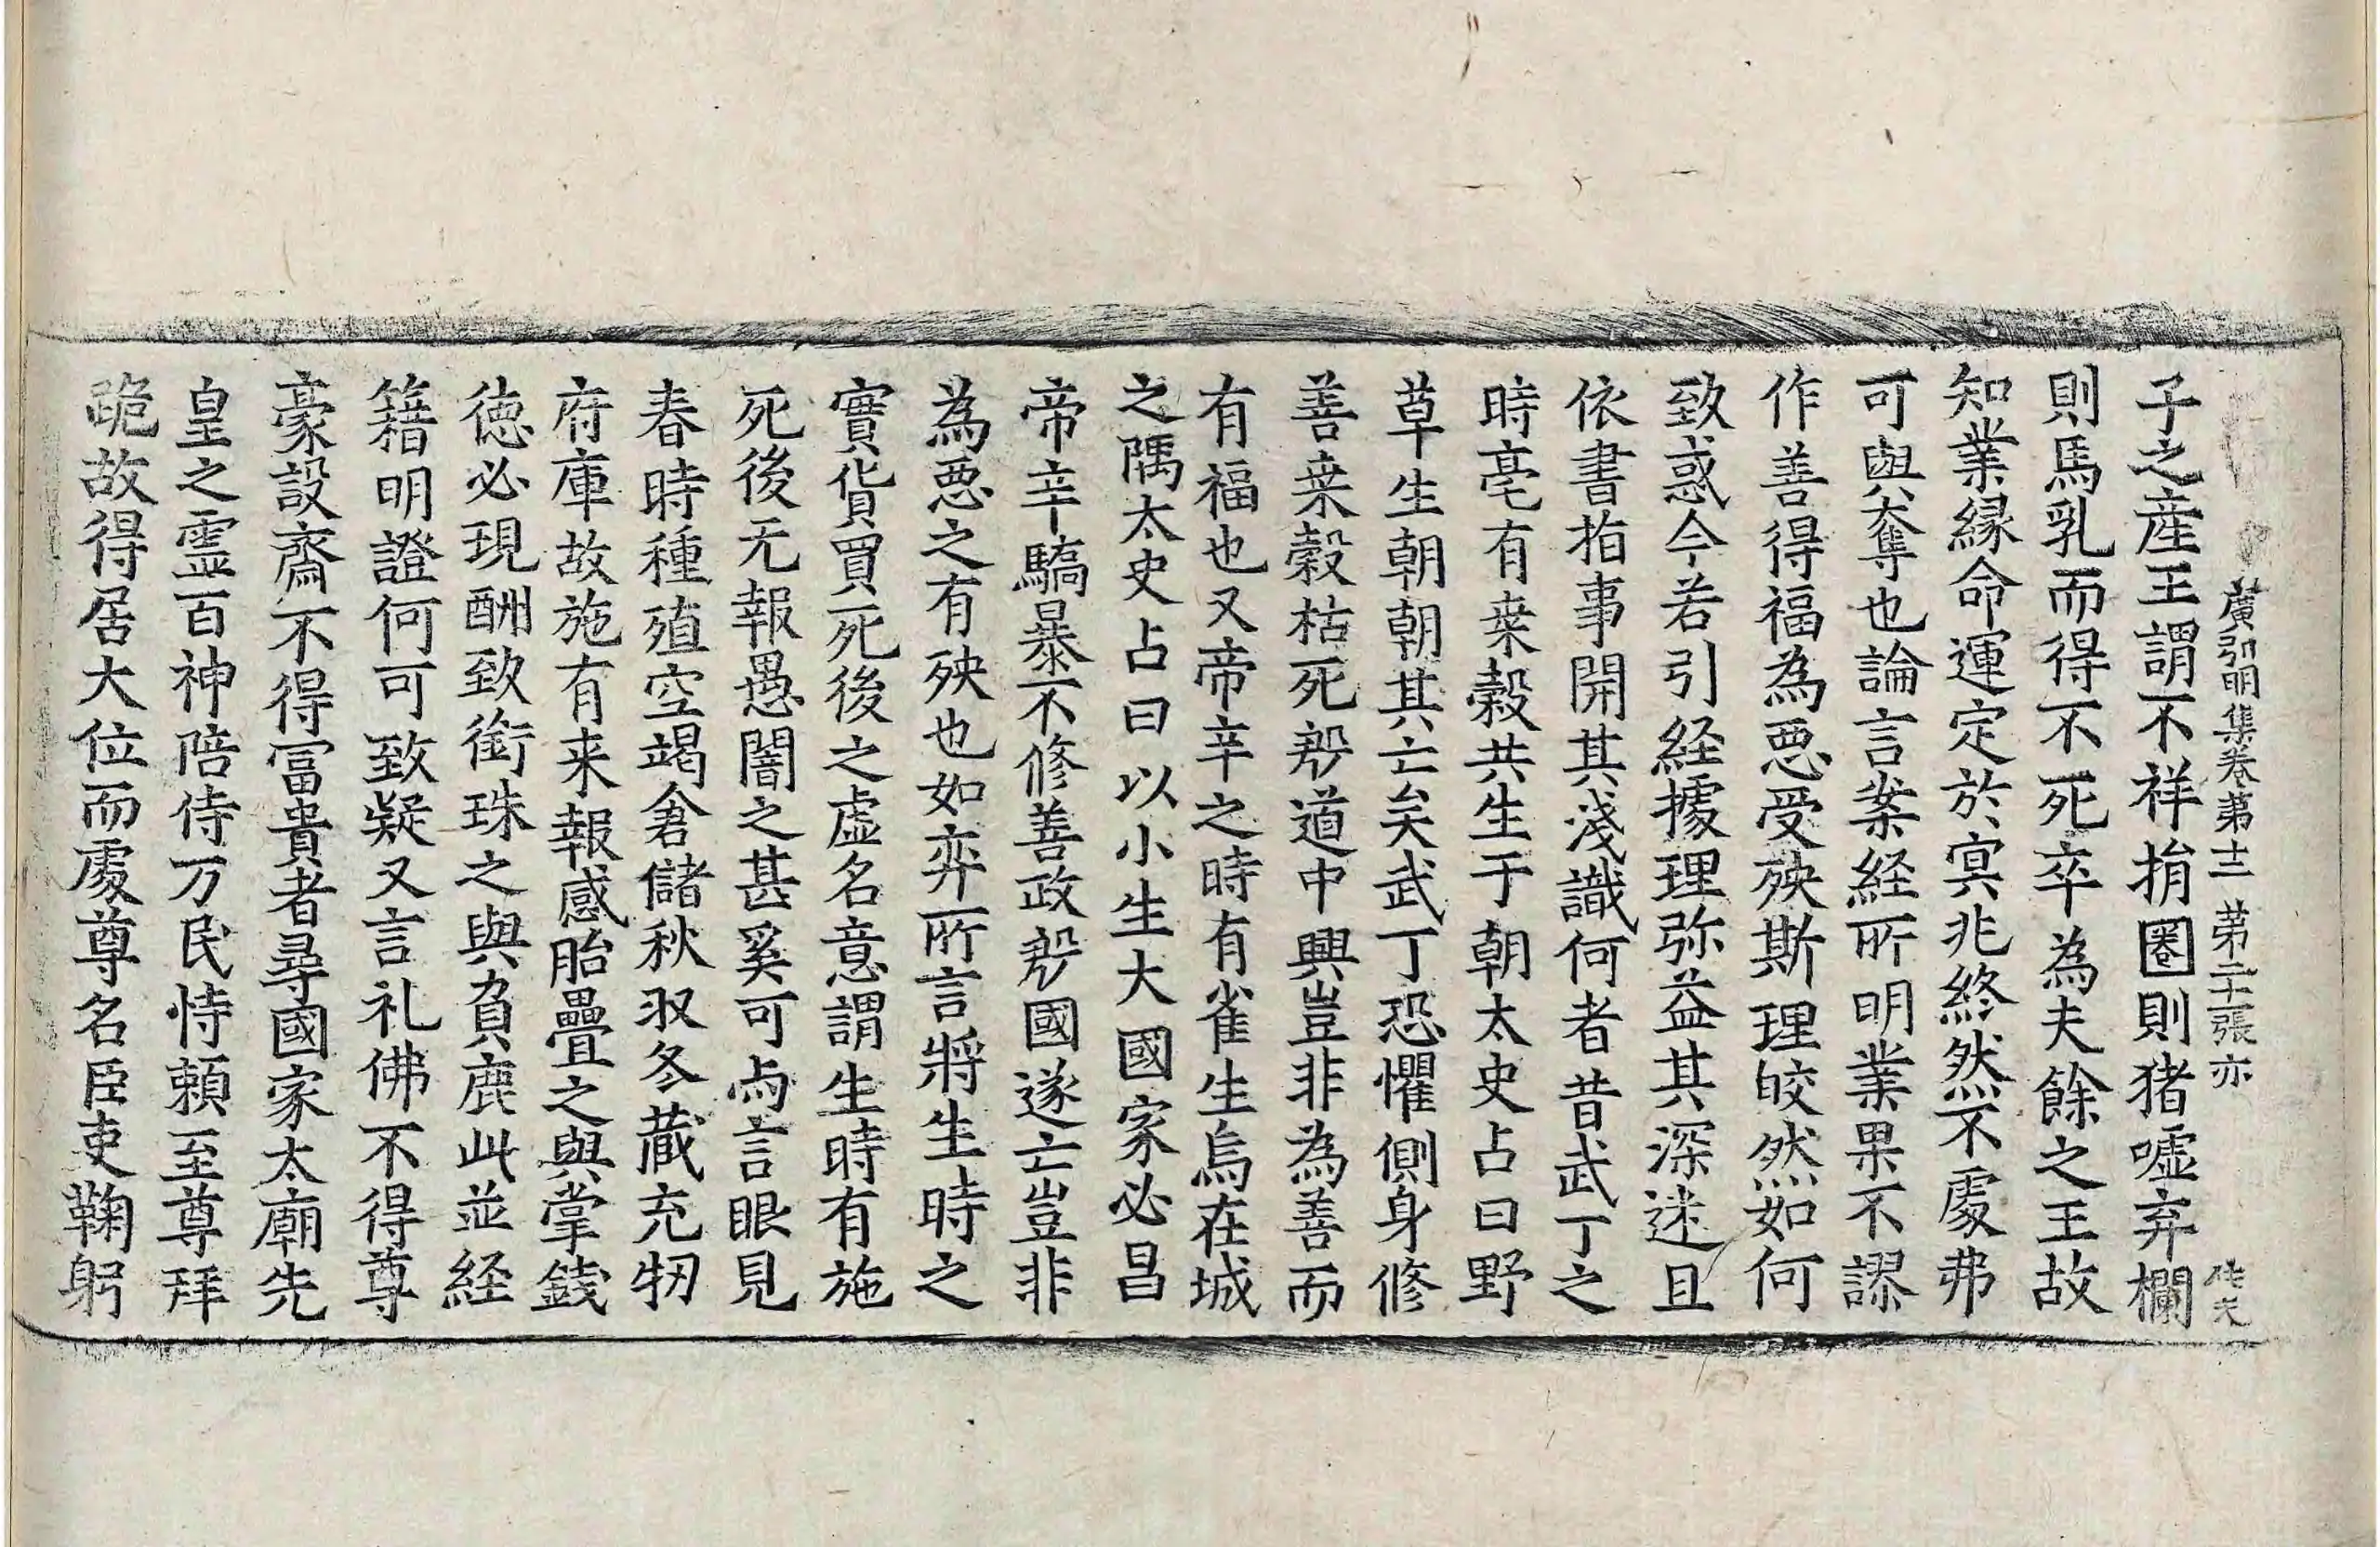 廣弘明集卷第十二 第二十二張 亦
子之産王謂不祥捐圈則猪嘘弃欄
則馬乳而得不死卒為夫餘之王故
知業縁命運定於冥兆終然不處弗
可與奪也論言案経所明業果不謬
作善得福為悪受殃斯理皎然如何
致惑今若引経據理弥益其深迷且
依書指事開其淺識何者昔武丁之
時亳有桒榖共生于朝太史占曰野
草生朝朝其亡矣武丁恐懼側身修
善桒榖枯死殷道中興豈非為善而
有福也又帝辛之時有雀生烏在城
之隅太史占曰以小生大國家必昌
帝辛驕暴不修善政殷國遂亡豈非
為悪之有殃也如弈所言將生時之
實貨買死後之虛名意謂生時有施
死後无報愚闇之甚奚可與言眼見
春時種殖空竭倉儲秋収冬蔵充牣
府庫故施有来報感胎疊之與掌錢
徳必現酬致銜珠之與負鹿此並経
籍明證何可致疑又言礼佛不得尊
豪設齋不得冨貴者尋國家太廟先
皇之霊百神陪侍万民恃頼至尊拜
跪故得居大位而處尊名臣吏鞠躬